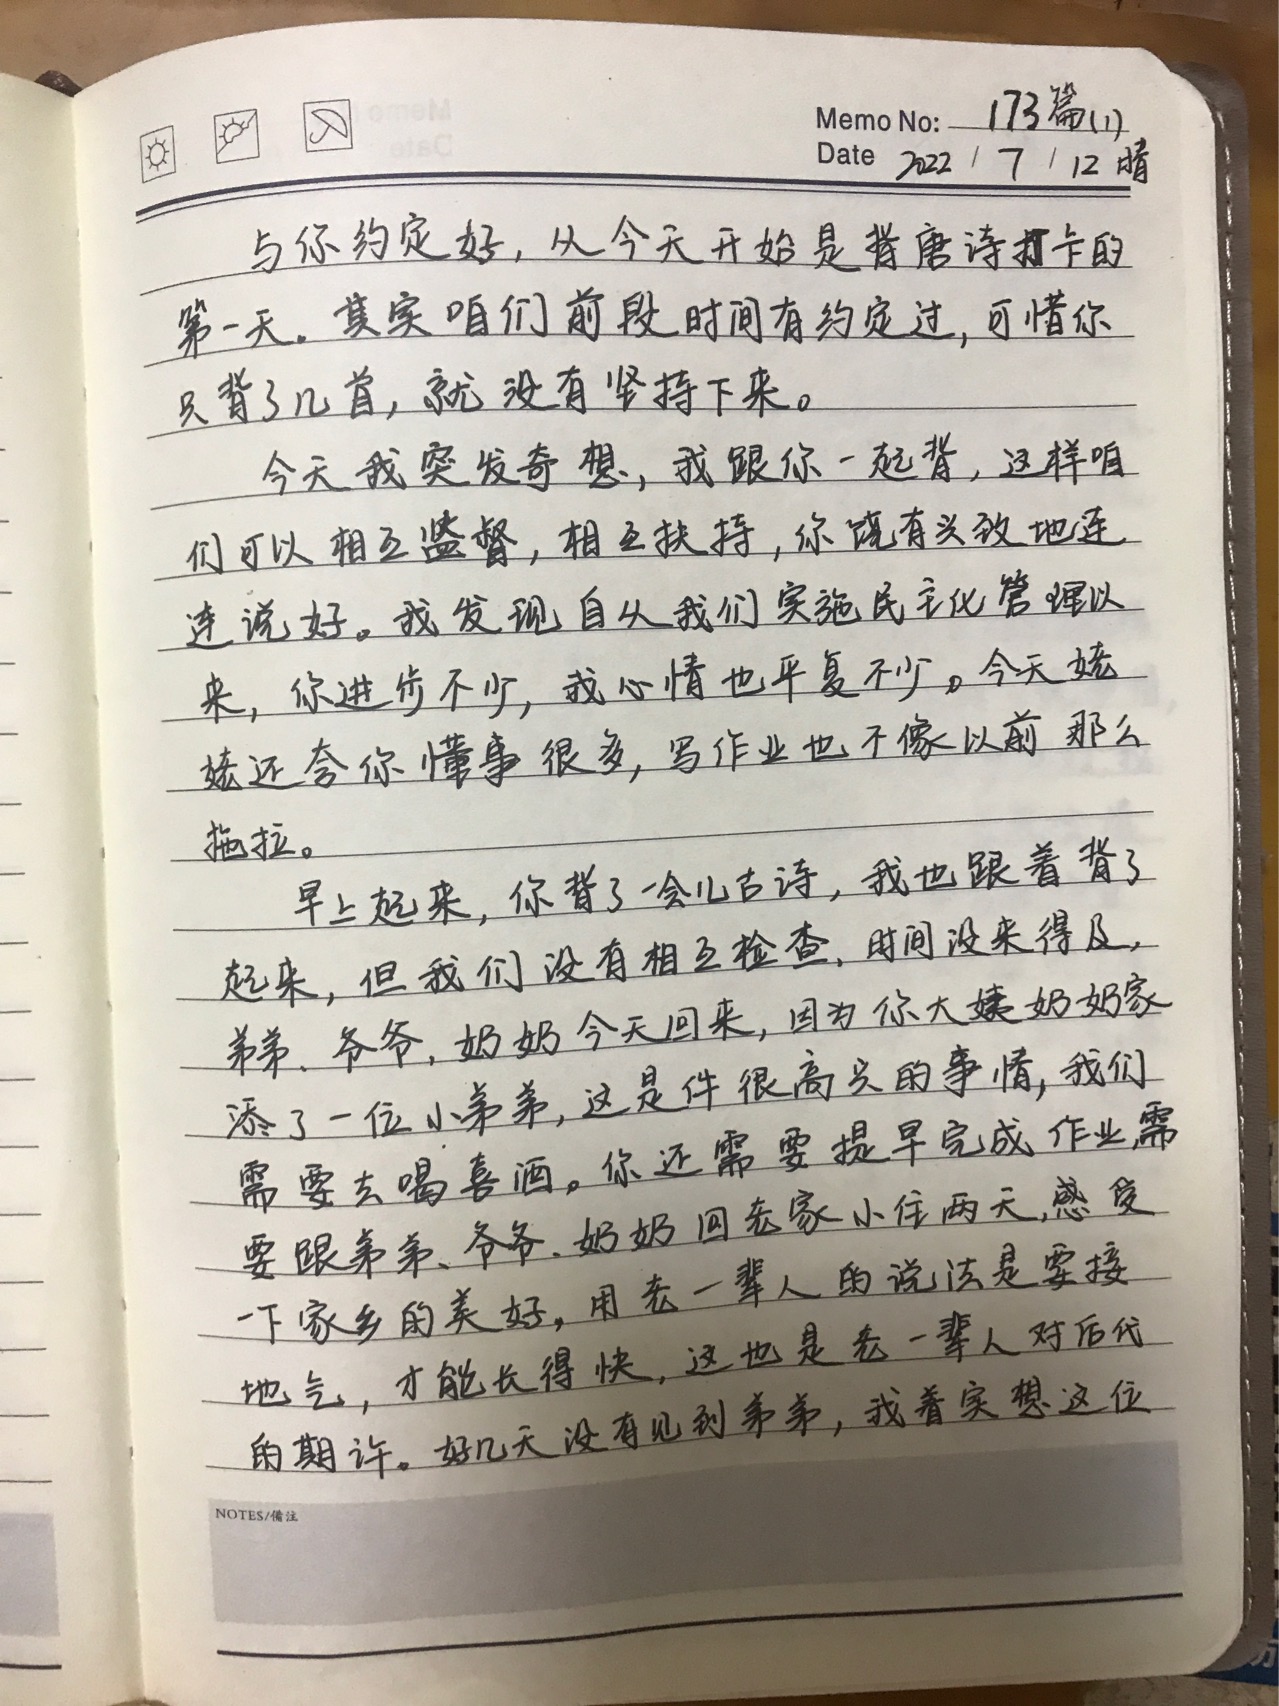 Memo No: 173篇(1)
Date 2022 / 7 / 12 晴
与你约定好，从今天开始是背唐诗打卡的
第一天。其实咱们前段时间有约定过，可惜你
只背了几首，就没有坚持下来。
今天我突发奇想，我跟你一起背，这样咱
们可以相互监督，相互扶持，你饶有兴致地连
连说好。我发现自从我们实施民主化管理以
来，你进步不少，我心情也平复不少。今天姥
姥还夸你懂事很多，写作业也不像以前那么
拖拉。
早上起来，你背了一会儿古诗，我也跟着背了
起来，但我们没有相互检查，时间没来得及，
弟弟、爷爷，奶奶今天回来，因为你大姨奶奶家
添了一位小弟弟，这是件很高兴的事情，我们
需要去喝喜酒。你还需要提早完成作业，需
要跟弟弟、爷爷、奶奶回老家小住两天，感受
一下家乡的美好，用老一辈人的说法是要接
地气，才能长得快，这也是老一辈人对后代
的期许。好几天没有见到弟弟，我着实想这位
NOTES/備注